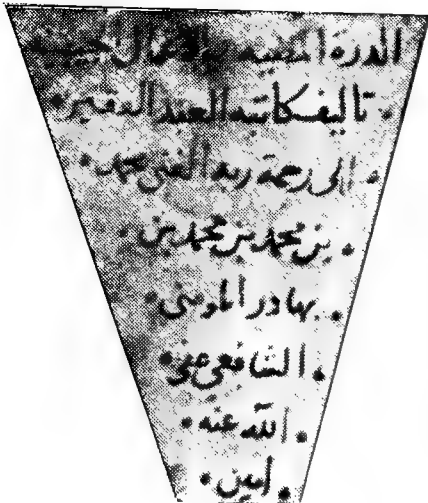 الدرة المضيه الاعمال
تاليف كاتبه العبد الفقير
الى رحمة ربه الغنى محمد
بن محمد بن محمد بن
بهادر المومنى
الشافعى عفى
الله عنه
امين